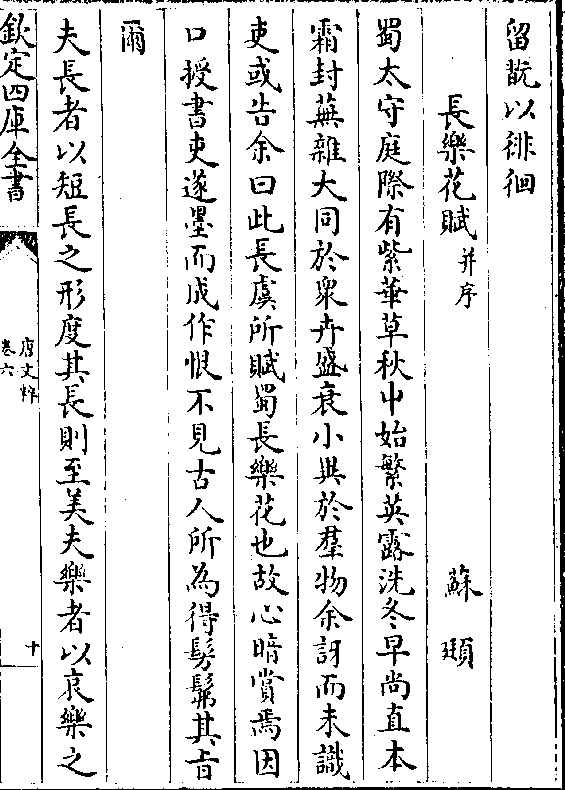 留翫以徘徊
長樂花賦并序 蘇頲
蜀太守庭際有紫華草秋中始繁英露洗冬早尚直本
霜封蕪雜大同於衆卉盛衰小異於羣物余訝而未識
吏或告余曰此長虞所賦蜀長樂花也故心暗賞焉因
口授書吏遂墨而成作恨不見古人所為得髣髴其旨
爾
夫長者以短長之形度其長則至美夫樂者以哀樂之
欽定四庫全書
唐文粹
卷六
十